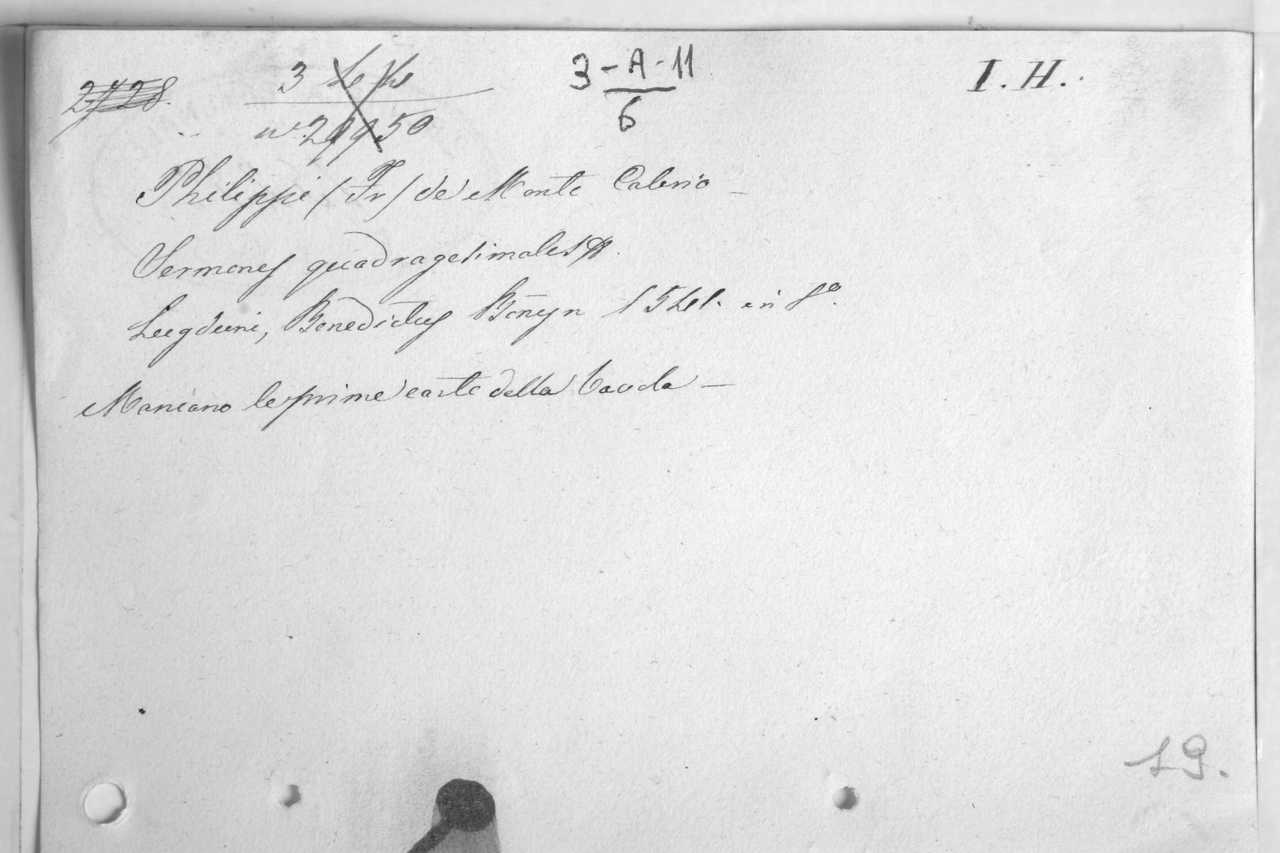 2728.
3
3-A-11
6
I. H.
nº 29950
Philippi (Fr) de Monte Calerio —
Sermones quadragesimales
Lugduni, Benedictus Boñyn 1541. in 8º.
Mancano le prime carte della tavola —
19.